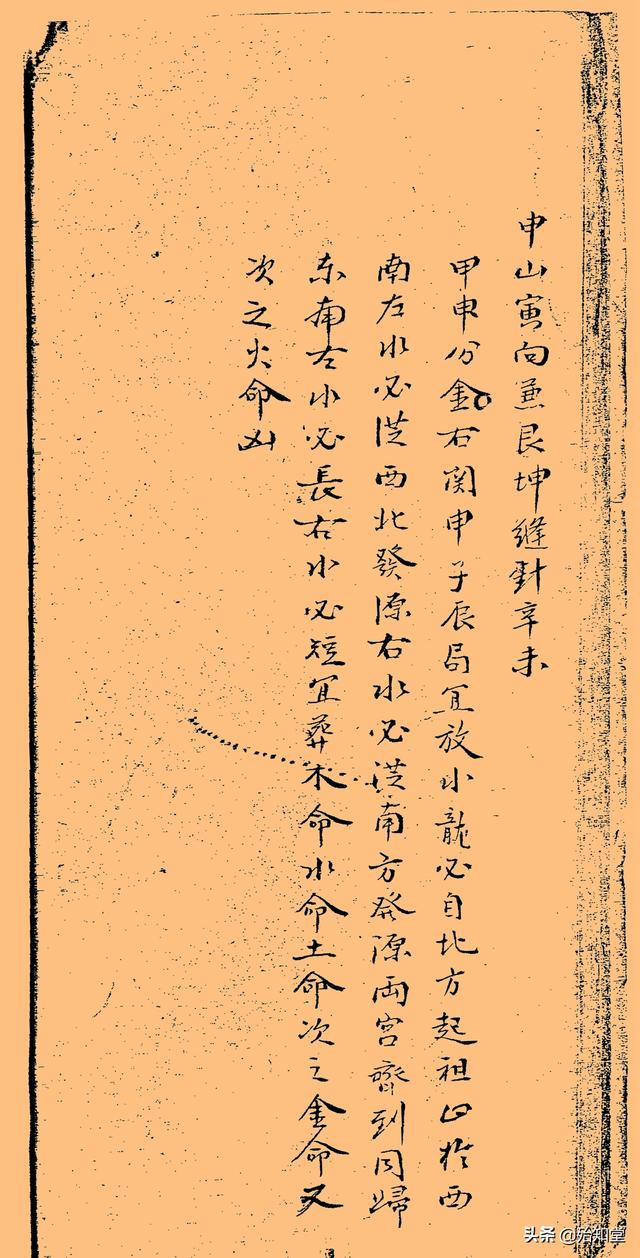 申山寅向兼艮坤縫針辛未
甲申分金右関申子辰局宜放水龍必自北方起祖止於西
南左水必從西北發源右水必從南方發源両宮齊到同歸
东南左水必長右水必短宜葬木命水命土命次之金命又
次之火命凶
头条 @殆知堂